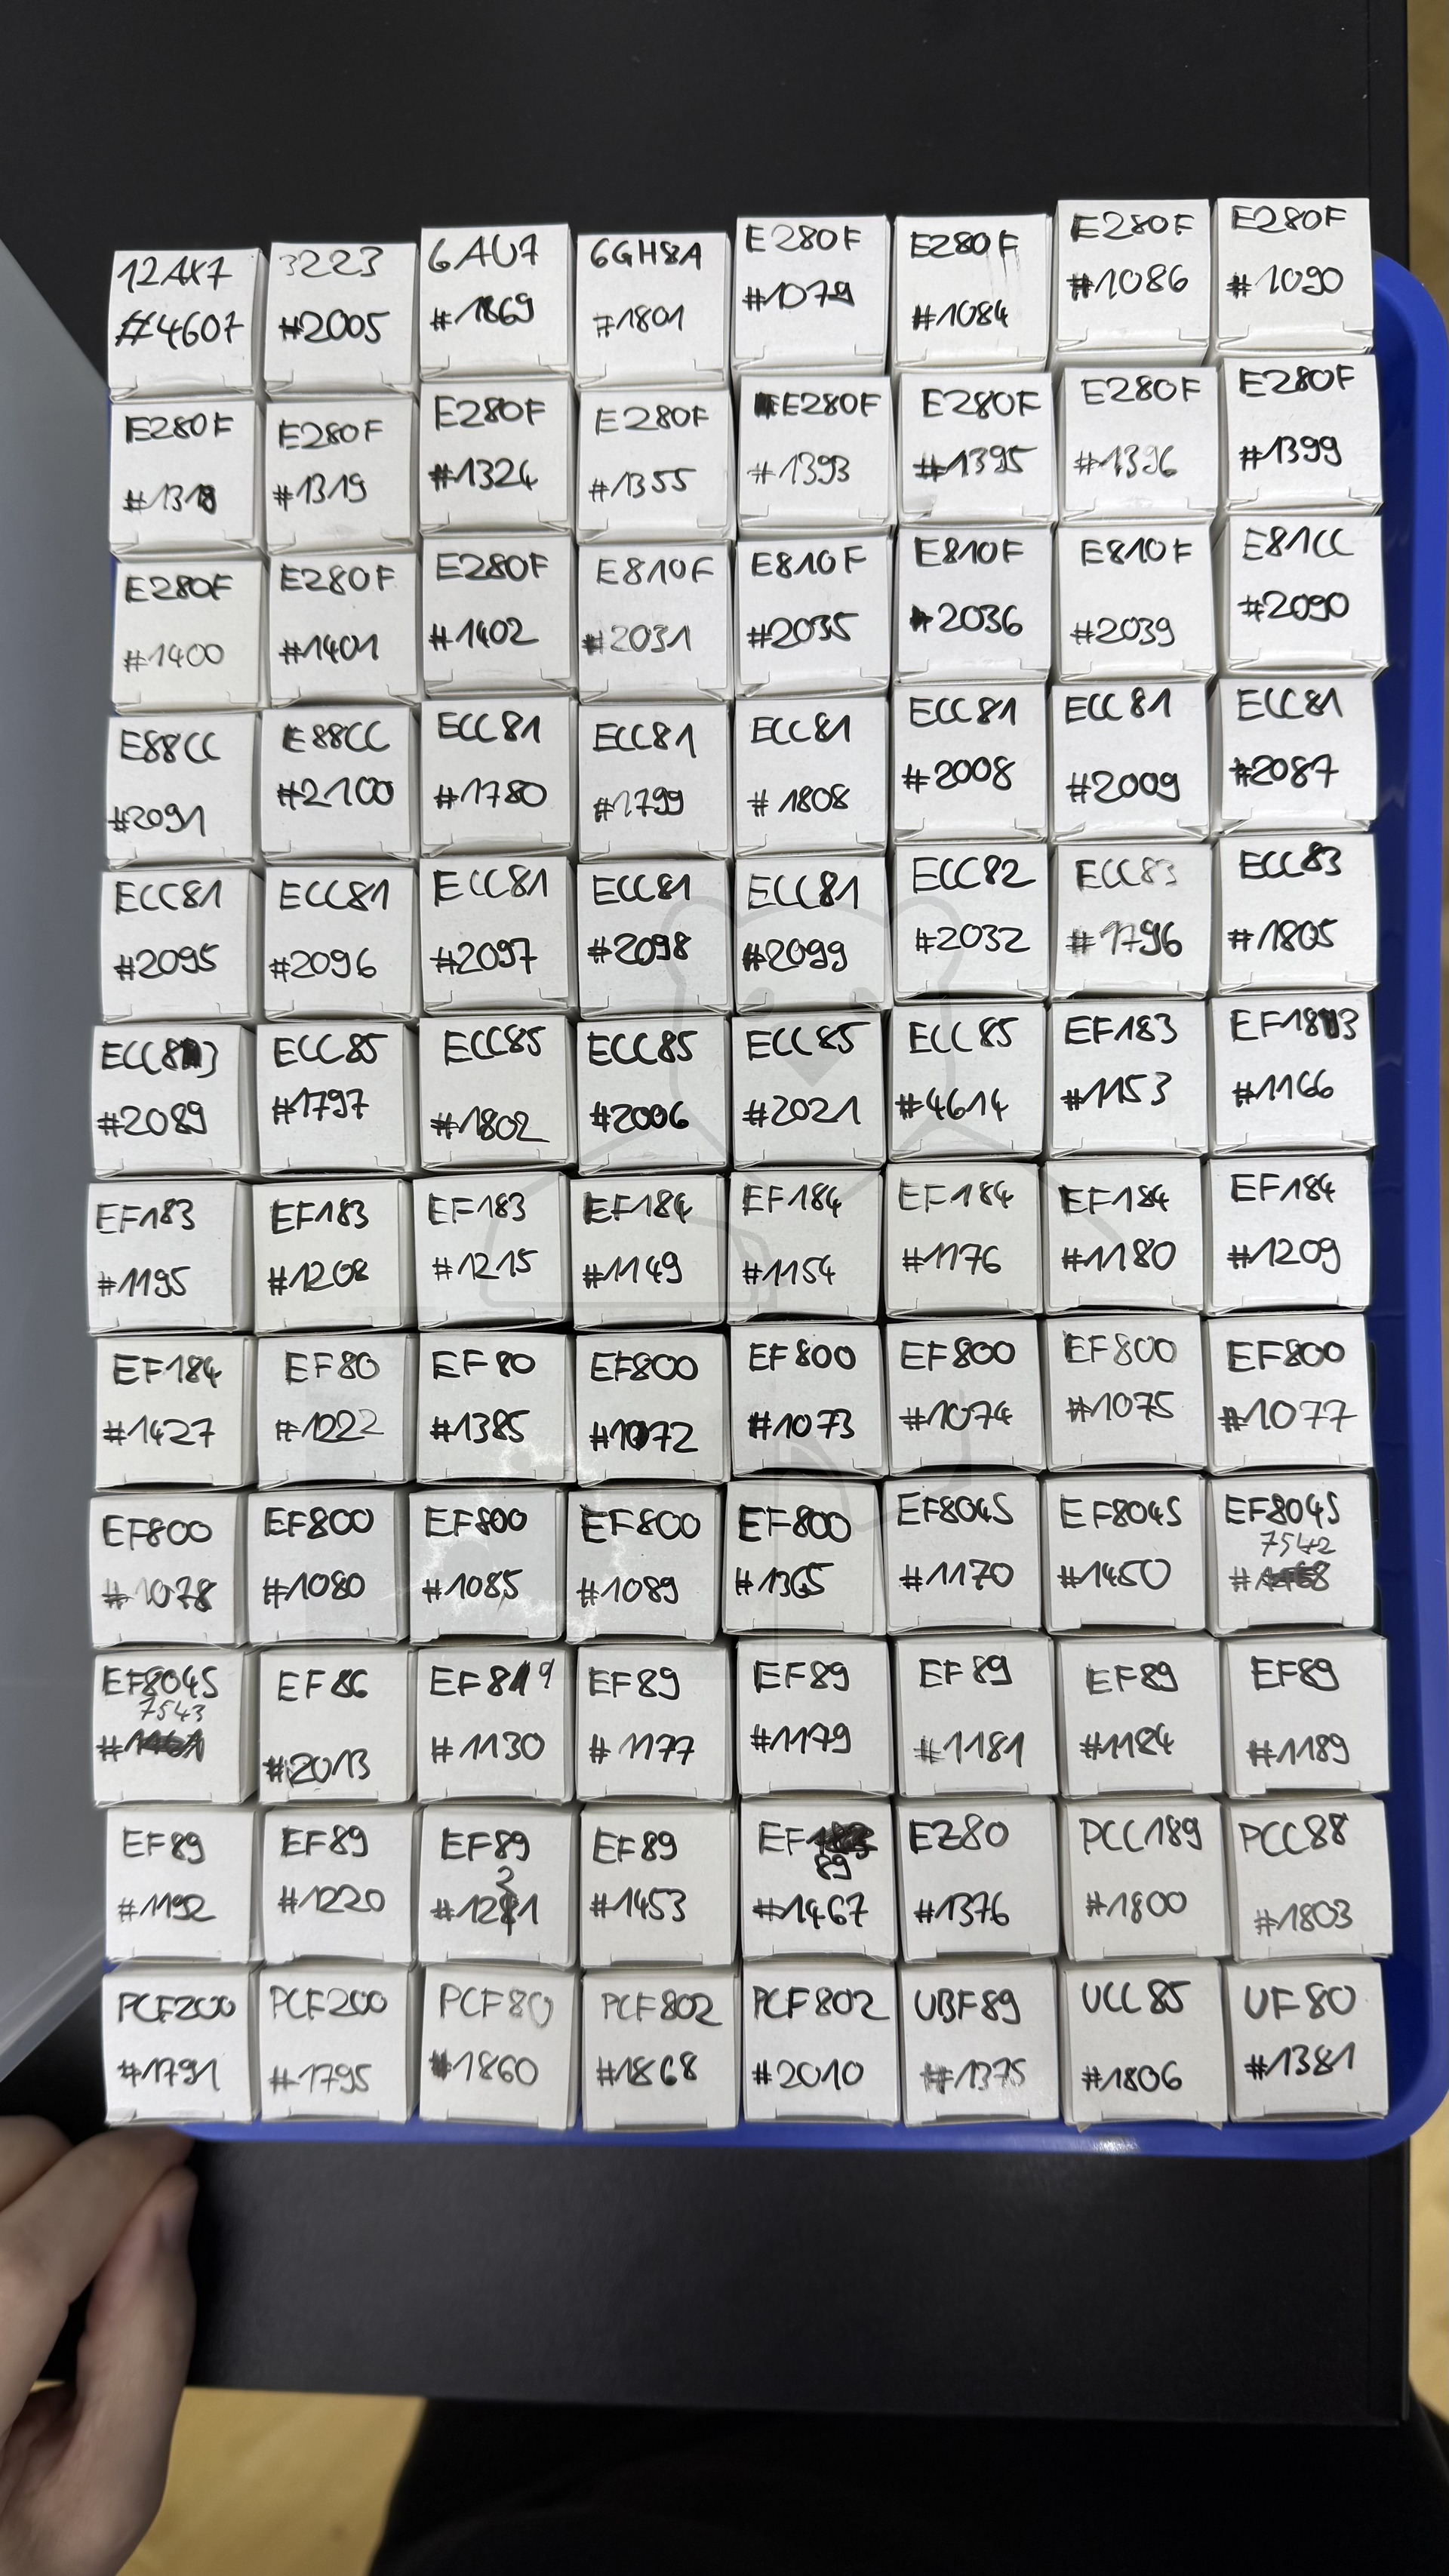 12AX7
#4607
3223
#2005
6AU7
#1869
6GH8A
#1801
E280F
#1079
E280F
#1084
E280F
#1086
E280F
#1090
E280F
#1318
E280F
#1319
E280F
#1324
E280F
#1355
E280F
#1393
E280F
#1395
E280F
#1396
E280F
#1399
E280F
#1400
E280F
#1401
E280F
#1402
E810F
#2031
E810F
#2035
E810F
#2036
E810F
#2039
E81CC
#2090
E88CC
#2091
E88CC
#2100
ECC81
#1780
ECC81
#1799
ECC81
#1808
ECC81
#2008
ECC81
#2009
ECC81
#2087
ECC81
#2095
ECC81
#2096
ECC81
#2097
ECC81
#2098
ECC81
#2099
ECC82
#2032
ECC83
#1796
ECC83
#1805
ECC83
#2089
ECC85
#1797
ECC85
#1802
ECC85
#2006
ECC85
#2021
ECC85
#4614
EF183
#1153
EF183
#1166
EF183
#1195
EF183
#1208
EF183
#1215
EF184
#1149
EF184
#1154
EF184
#1176
EF184
#1180
EF184
#1209
EF184
#1427
EF80
#1222
EF80
#1385
EF800
#1072
EF800
#1073
EF800
#1074
EF800
#1075
EF800
#1077
EF800
#1078
EF800
#1080
EF800
#1085
EF800
#1089
EF800
#1365
EF804S
#1170
EF804S
#1450
EF804S
7542
EF804S
7543
EF86
#2013
EF89
#1130
EF89
#1177
EF89
#1179
EF89
#1181
EF89
#1184
EF89
#1189
EF89
#1192
EF89
#1220
EF89
EF89
#1453
EF
89
#1467
EZ80
#1376
PCC189
#1800
PCC88
#1803
PCF200
#1791
PCF200
#1795
PCF80
#1860
PCF802
#1868
PCF802
#2010
UBF89
#1375
UCC85
#1806
UF80
#1381